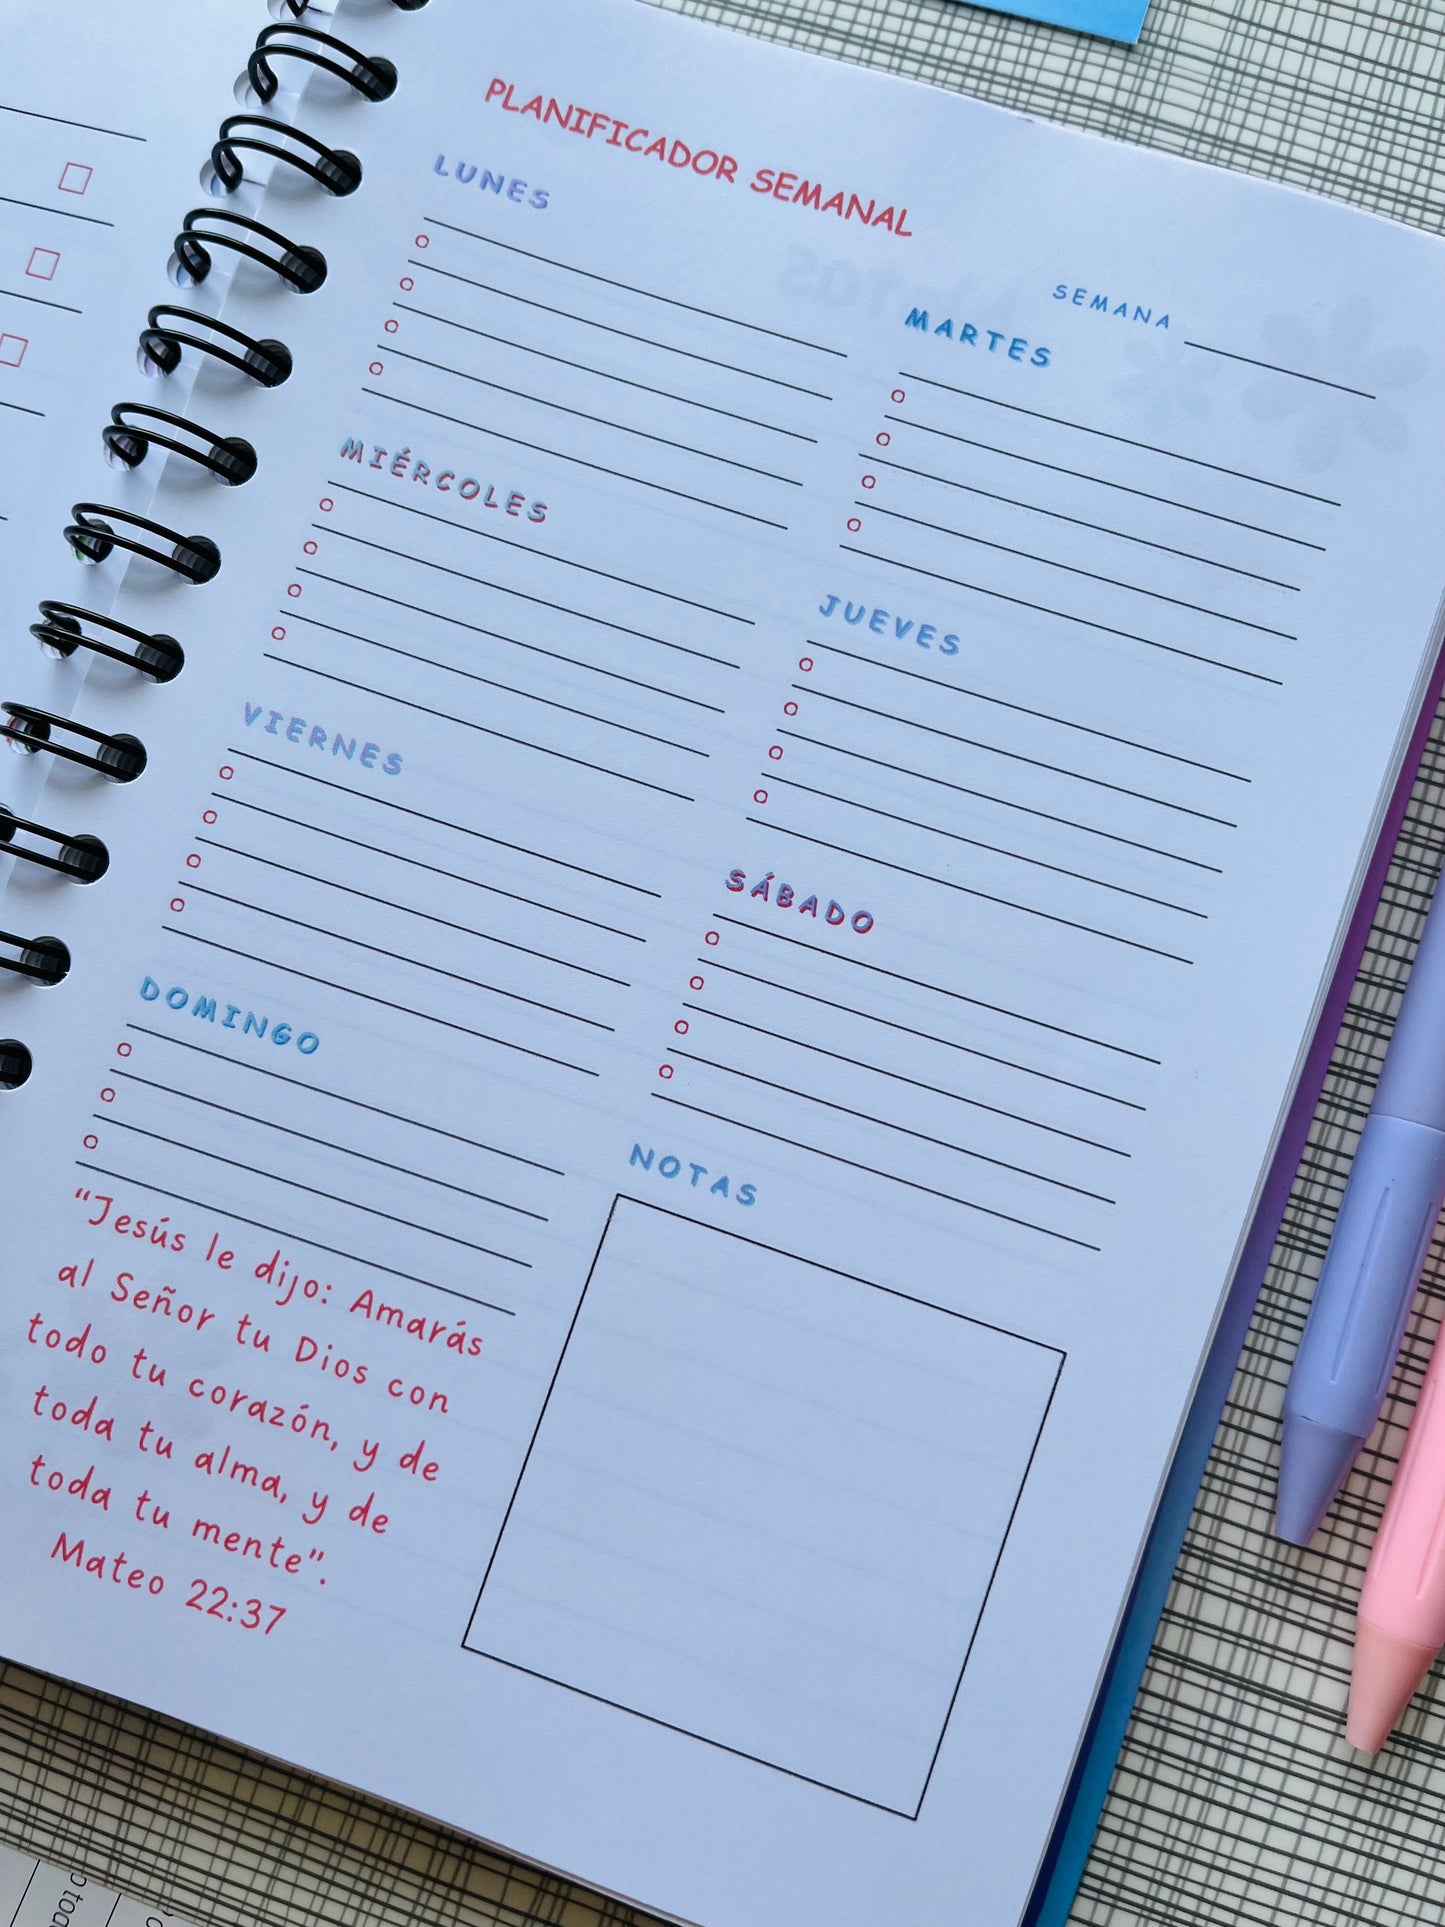 PLANIFICADOR SEMANAL
SEMANA
LUNES
MARTES
MIÉRCOLES
JUEVES
VIERNES
SÁBADO
DOMINGO
NOTAS
"Jesús le dijo: Amarás
al Señor tu Dios con
todo tu corazón, y de
toda tu alma, y de
toda tu mente".
Mateo 22:37